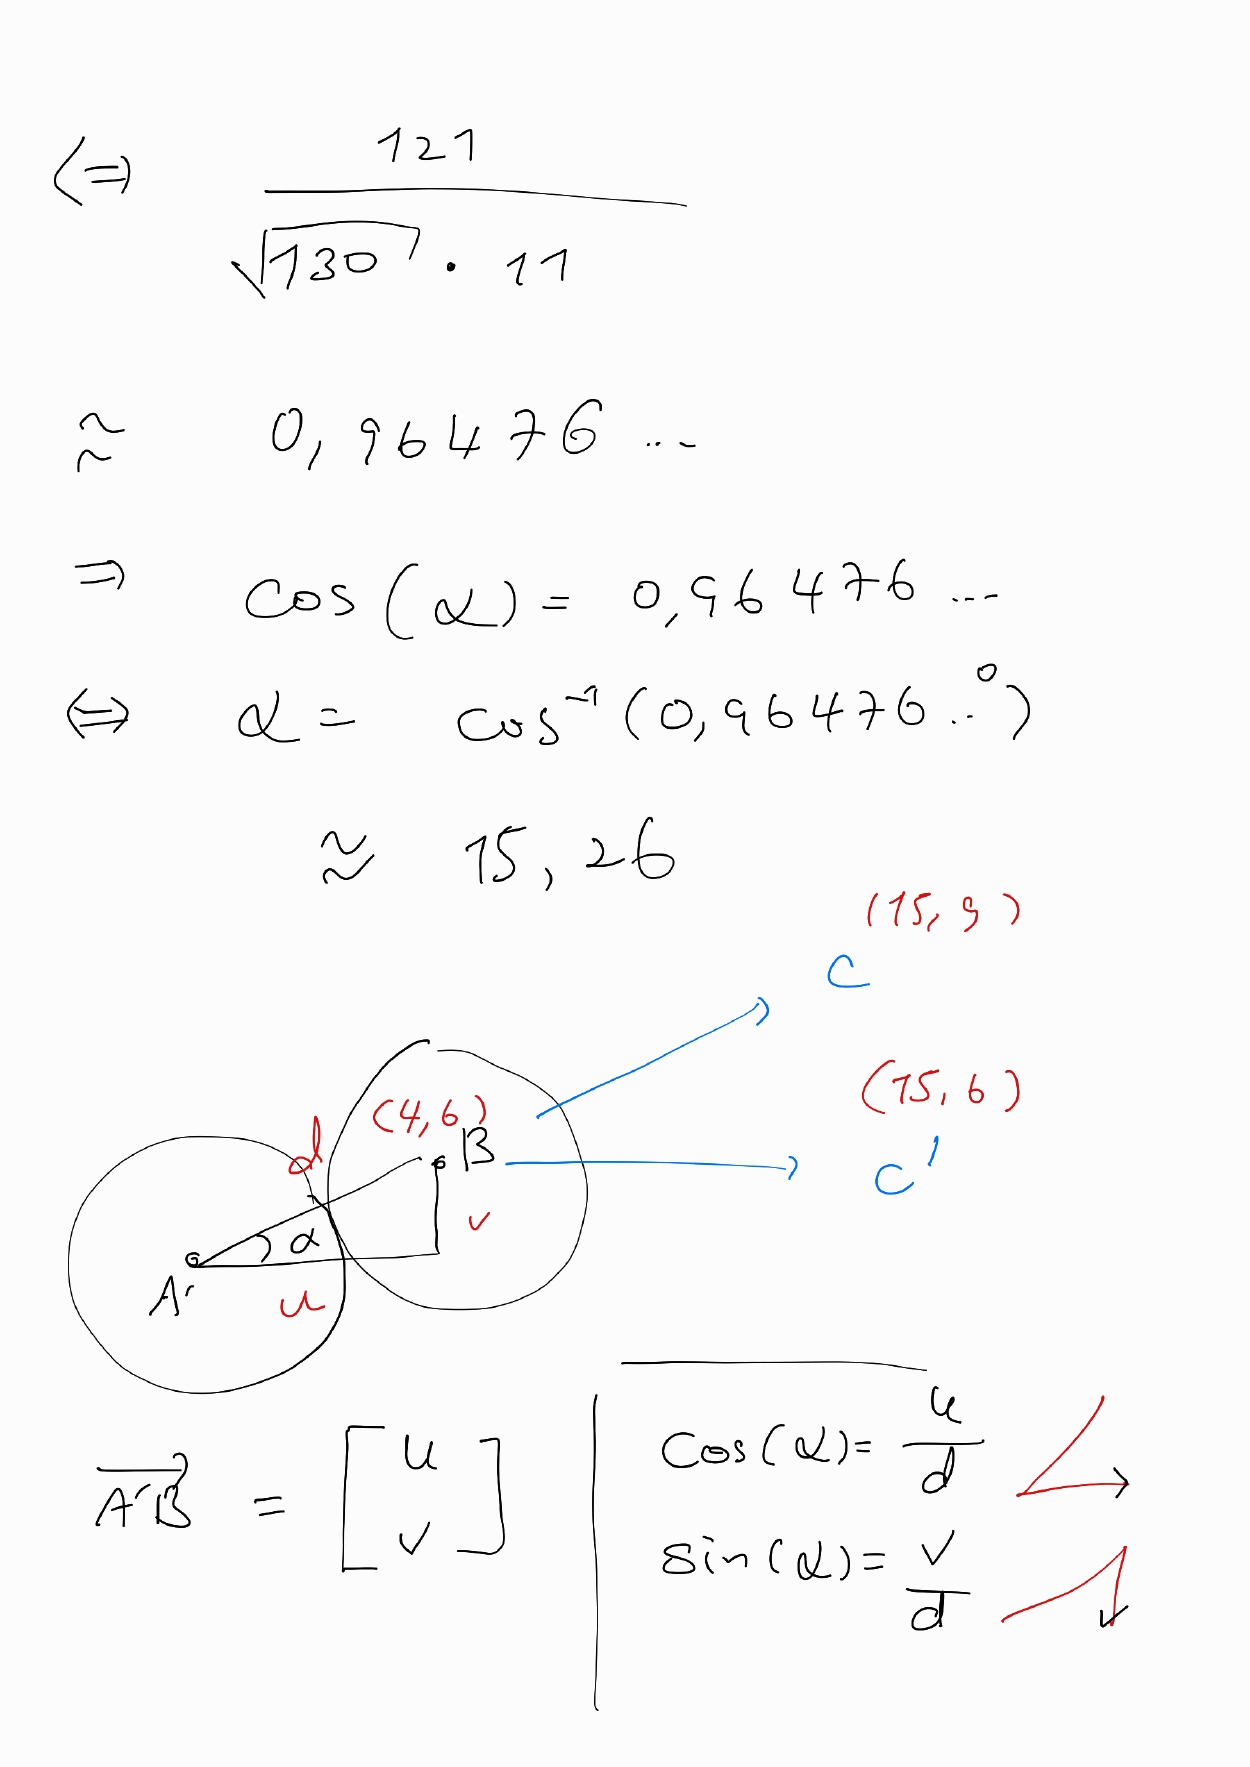 ⇔ 121
√130 · 11
≈ 0,96476...
⇒ cos(α) = 0,96476...
⇔ α = cos⁻¹(0,96476..°)
≈ 15,26
(15, 9)
C
(4, 6)
B
(15, 6)
C'
d
v
α
A'
u
A'B = [u v]
cos(α) = u/d
sin(α) = v/d